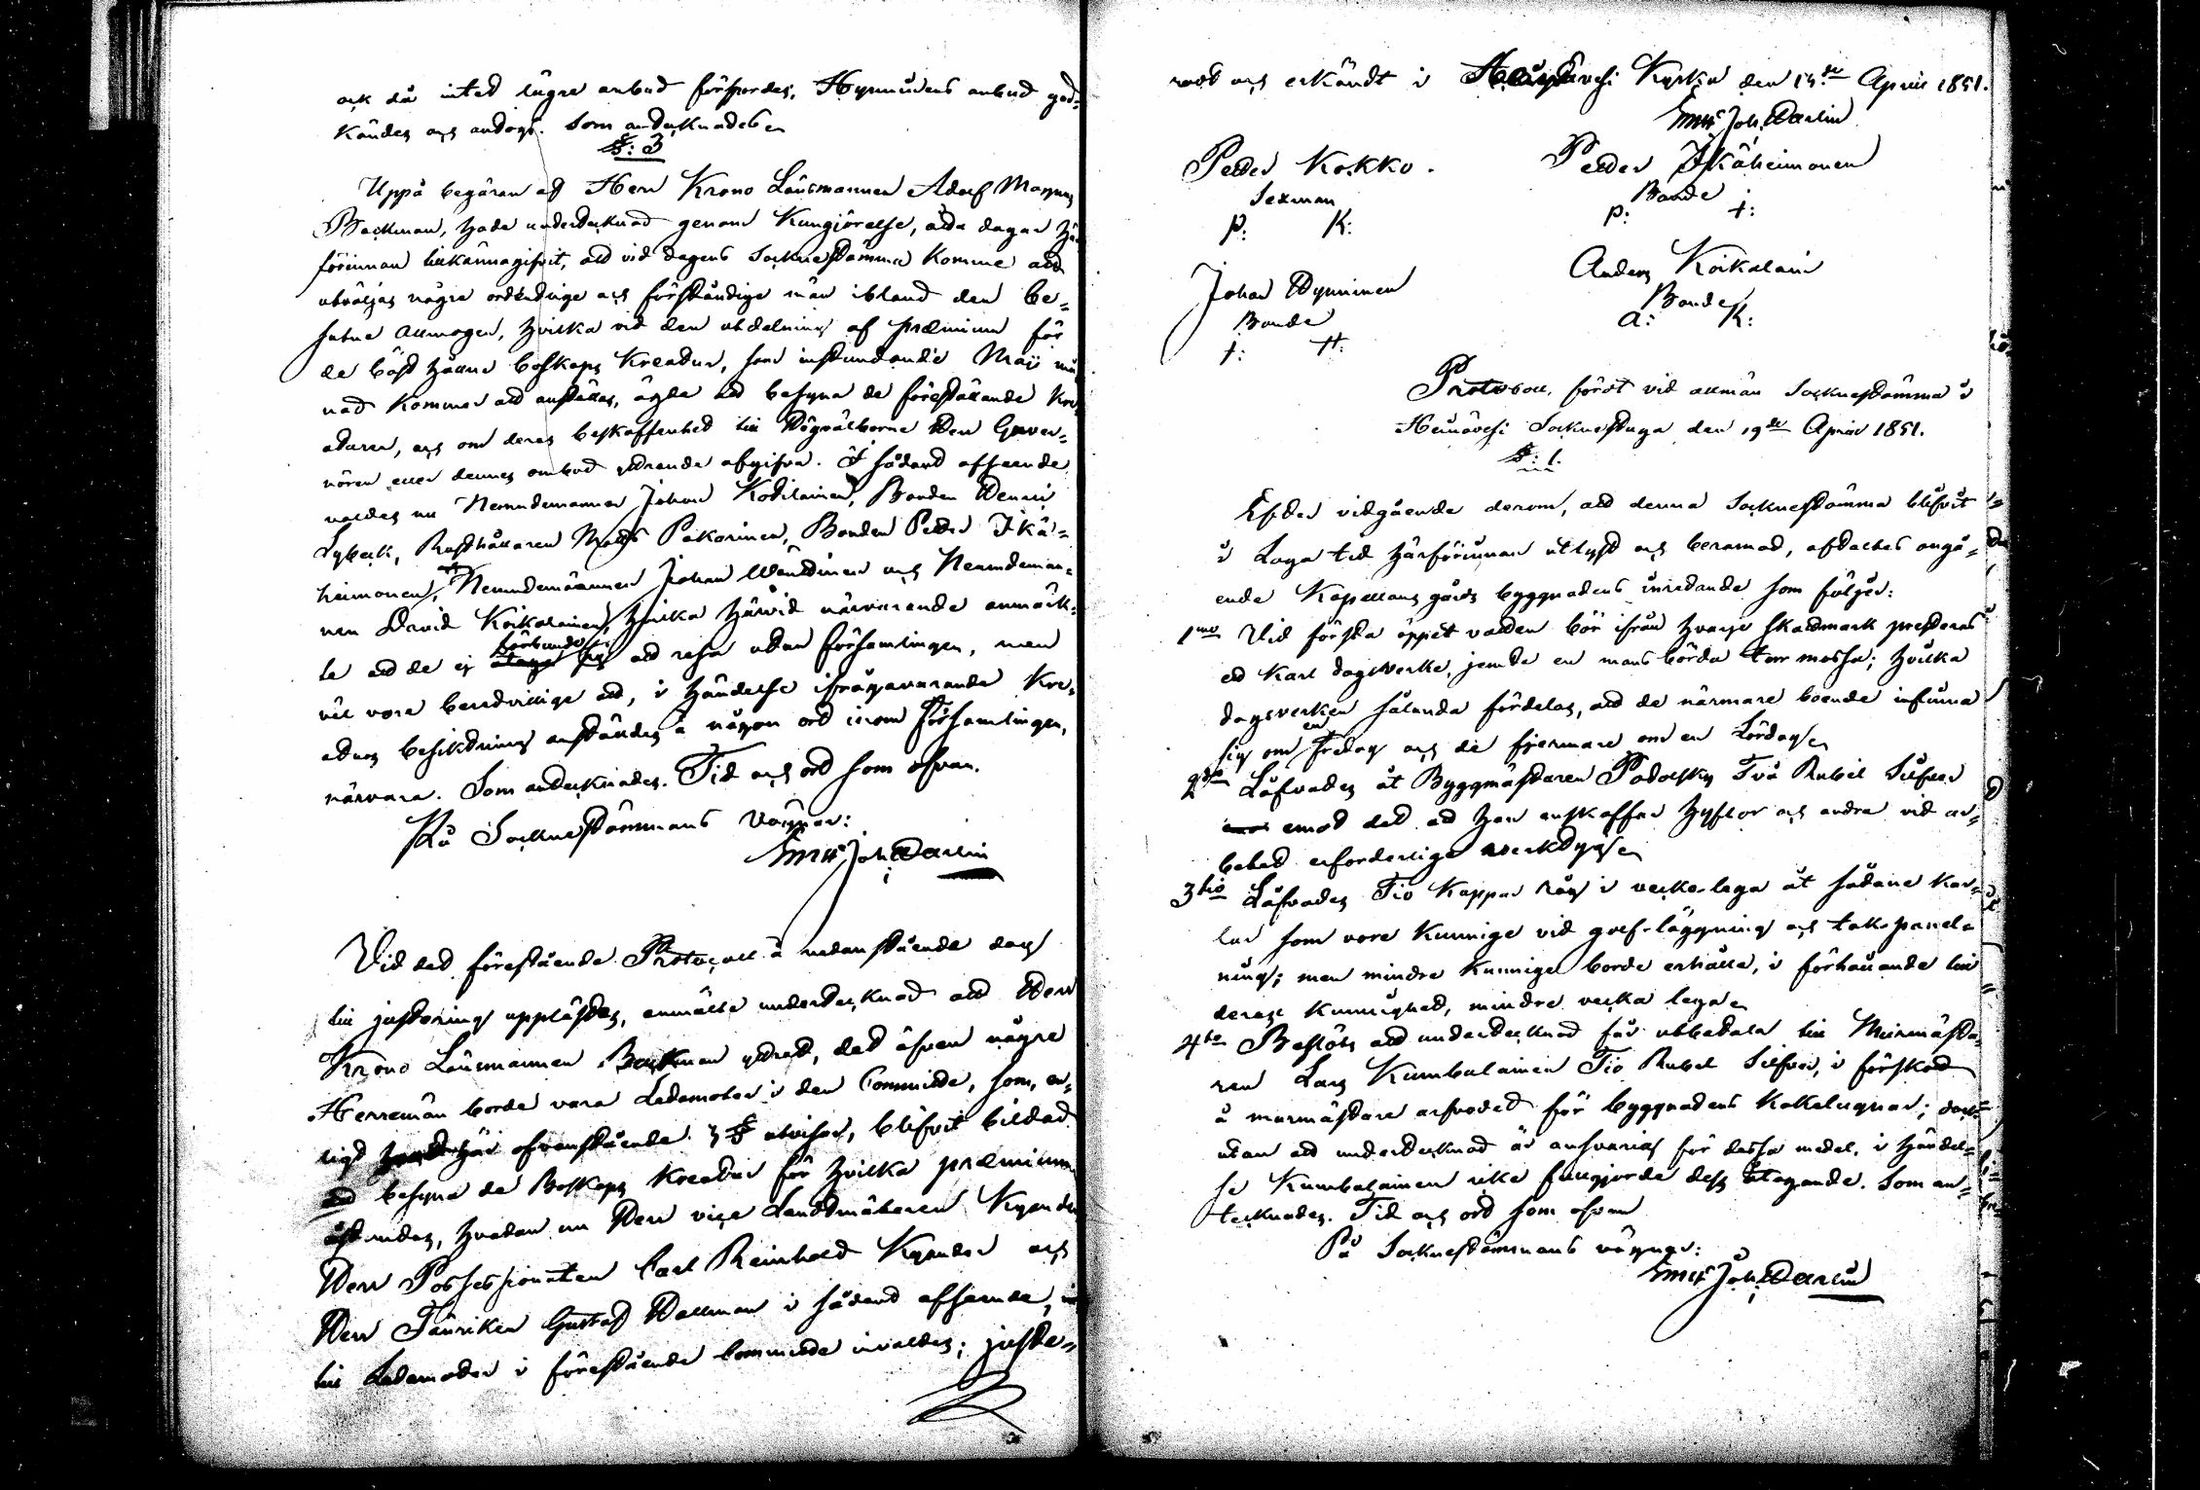 och då intet lägre anbud försпordes, Hynninens anbud god-
kändes och antogs. Som antecknades
§: 3
Uppå begäran af Herr Krono Länsmannen Adolf Magnus
Backman, hade undertecknad genom Kungjörelse, åtta dagar här
förinnan tillkännagifvit, att vid dagens Socknestämma komme att
utväljas någre ordentlige och förståndige män ibland den be-
sutne Allmogen, hvilka vid den utdelning af præmium för
de bäst hållne boskaps Kreatur, som instundande Maji må-
nad kommer att anställas, ägde att besyna de föreställande Kre-
aturen, och om deras beskaffenhet till Högvälborne Herr Guver-
nören eller dennes ombud yttrande afgifva. I sådant afseende
valdes nu Nemndemannen Johan Kotilainen, Bonden Henric
Lybeck, Rusthållaren Matts Pakarinen, Bonden Petter Ikä-
heimonen, Nemndemannen Johan Wäntinen och Nemndeman-
nen David Koikalainen, hvilka härvid närvarande anmärk-
te att de ej åtaga sig att resa utom församlingen, men
väl vore beredvillige att, i händelse ifrågavarande Kre-
aturs besiktning anställdes å någon ort inom Församlingen,
närvara. Som antecknades. Tid och ort som ofvan.
På Sockne Stämmans vägnar:
Em: Joh: Darlin
Vid det förestående Protocoll å nedanstående dag
till justering upplästes, anmälte undertecknad att Herr
Krono Länsmannen Backman yttrat, det äfven någre
Herremän borde vara Ledamoter i den Committé, som, en-
ligt hvad här ofvanstående 3 § utvisar, blifvit bildad
att besyna de Boskaps Kreatur för hvilka præmium
åstundas, hvadan nu Herr vice Landtmätaren Kyander
Herr Possessionaten Carl Reinhold Kyander och
Herr Fänriken Gustaf Wallman i sådant afseende,
till Ledamoter i förestående Committé invaldes; juste-
radt och erkändt i Heinävesi Kyrka den 14de April 1851.
Em: Joh: Darlin
Petter Kokko.
Sexman
P: K:
Petter Ikäheimonen
Bonde
P: I:
Johan Hynninen
Bonde
I: H:
Anders Koikalain
Bonde
A: K:
Protocoll, fördt vid allmän Socknestämma i
Heinävesi Socknestuga den 19de April 1851.
§: 1.
Efter vidgående derom, att denna Socknestämma blifvit
i Laga tid härförinnan utlyst och beramad, afhandlades angå-
ende Kapellans gårds byggnadens inredande som följer:
1mo Vid första öppet vatten bör ifrån hvarje Skattmark presteras
ett Karl dagsverke, jemte en mans börda torr mossa; hvilka
dagsverken sålunda fördelas, att de närmare boende infinna
sig om en Fredag och de fjermare om en Lördag
2do Låfvades åt Byggmästaren Podolsky Två Rubel Silfver
emot det att han anskaffar hyflor och andra vid ar-
betet erforderlige verktyg
3tio Låfvades Tio Kappar råg i vecko lega åt sådane kar-
lar som vore kunnige vid golf-läggning och tak-panel-
ning; men mindre kunnige borde erhålla, i förhållande till
deras kunnighet, mindre vecka lega
4to Beslöts att undertecknad får utbetala till Murmästa-
ren Lars Kumbulainen Tio Rubel Silfver, i förskott
å murmästare arfvodet för byggnadens Kakelugnar; dock
utan att undertecknad är ansvarig för dessa medel, i händel-
se Kumbulainen icke fullgjorde dess åtagande. Som an-
tecknades. Tid och ort som ofvan
På Socknestämmans vägnar:
Em: Joh: Darlin